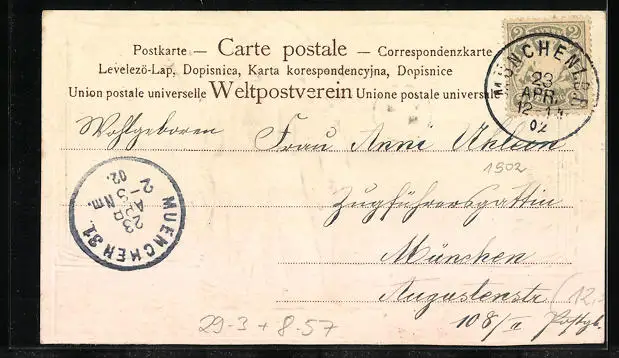 Postkarte — Carte postale — Correspondenzkarte
Levelezö-Lap, Dopisnica, Karta korespondencyjna, Dopisnice
Union postale universelle Weltpostverein Unione postale universale
2 2
MÜNCHEN
23
APR.
12-1
02
Wohlgeboren Frau Anni
1902
Zugführersgattin
München
Augustenstr.
108/II
12,-
MUENCHEN 31.
23
APR
Nm.
2-3
02.
29-3 + 8-57